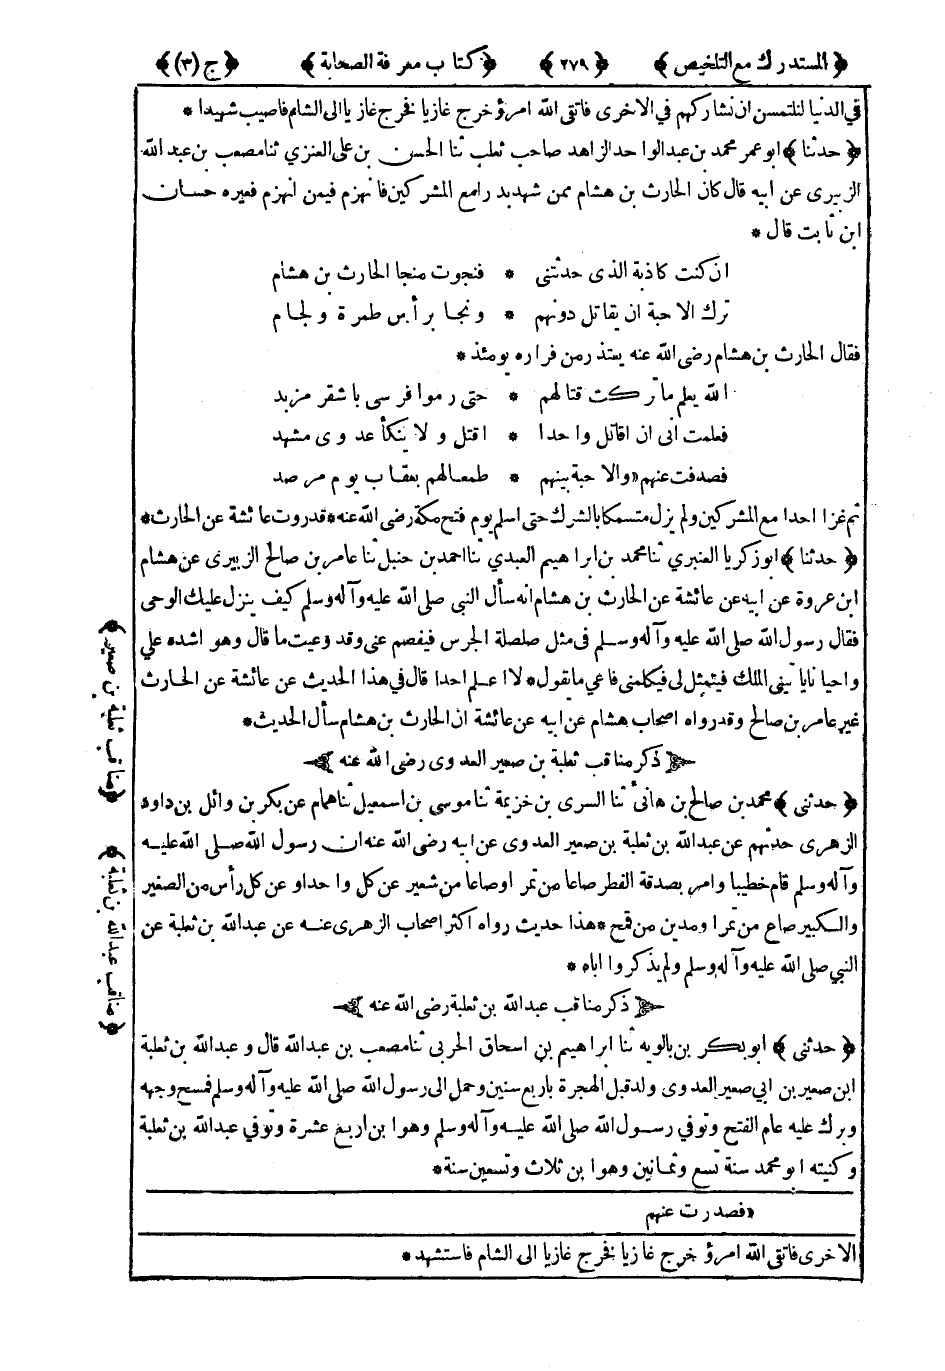 ﴿ المستدرك مع التلخيص ﴾ ﴿ ٢٧٩ ﴾ ﴿ كتاب معرفة الصحابة ﴾ ﴿ ج (٣) ﴾
في الدنيا لنلتمسن ان نشاركهم في الاخرى فاتقى الله امرؤ خرج غازيا فخرج غازيا الى الشام فاصيب شهيدا *
﴿ حدثنا ﴾ ابو عمر محمد بن عبد الواحد الزاهد صاحب ثعلب ثنا الحسن بن علي العنزي ثنا مصعب بن عبد الله
الزبيرى عن ابيه قال كان الحارث بن هشام ممن شهد بدرا مع المشركين فانهزم فيمن انهزم فعيره حسان
ابن ثابت قال *
ان كنت كاذبة الذى حدثتنى * فنجوت منجا الحارث بن هشام
ترك الاحبة ان يقاتل دونهم * ونجا برأس طمرة ولجام
فقال الحارث بن هشام رضى الله عنه يعتذر من فراره يومئذ *
الله يعلم ما تركت قتالهم * حتى رموا فرسى باشقر مزبد
فعلمت انى ان اقاتل واحدا * اقتل ولا ينكأ عدوى مشهد
فصدفت عنهم «والاحبة بينهم * طمعا لهم بعقاب يوم مرصد
ثم غزا احدا مع المشركين ولم يزل متمسكا بالشرك حتى اسلم يوم فتح مكة رضى الله عنه * قد روت عائشة عن الحارث *
﴿ حدثنا ﴾ ابو زكريا العنبري ثنا محمد بن ابراهيم العبدي ثنا احمد بن حنبل ثنا عامر بن صالح الزبيرى عن هشام
ابن عروة عن ابيه عن عائشة عن الحارث بن هشام انه سأل النبي صلى الله عليه وآله وسلم كيف ينزل عليك الوحى
فقال رسول الله صلى الله عليه وآله وسلم فى مثل صلصلة الجرس فيفصم عنى وقد وعيت ما قال وهو اشده علي
واحيانا يأتينى الملك فيتمثل لى فيكلمنى فاعي ما يقول * لا اعلم احدا قال في هذا الحديث عن عائشة عن الحارث
غير عامر بن صالح وقد رواه اصحاب هشام عن ابيه عن عائشة ان الحارث بن هشام سأل الحديث *
ذكر مناقب ثعلبة بن صعير العدوى رضى الله عنه
﴿ حدثنى ﴾ محمد بن صالح بن هانئ ثنا السرى بن خزيمة ثنا موسى بن اسمعيل ثنا همام عن بكر بن وائل بن داود
الزهرى حدثهم عن عبد الله بن ثعلبة بن صعير العدوى عن ابيه رضى الله عنه ان رسول الله صلى الله عليه
وآله وسلم قام خطيبا وامر بصدقة الفطر صاعا من تمر او صاعا من شعير عن كل واحد او عن كل رأس من الصغير
والكبير صاع من تمر او مدين من قمح * هذا حديث رواه اكثر اصحاب الزهرى عنه عن عبد الله بن ثعلبة عن
النبي صلى الله عليه وآله وسلم ولم يذكروا اباه *
ذكر مناقب عبد الله بن ثعلبة رضى الله عنه
﴿ حدثنى ﴾ ابو بكر بن بالويه ثنا ابراهيم بن اسحاق الحربي ثنا مصعب بن عبد الله قال وعبد الله بن ثعلبة
ابن صعير بن ابي صعير العدوى ولد قبل الهجرة باربع سنين وحمل الى رسول الله صلى الله عليه وآله وسلم فمسح وجهه
وبرك عليه عام الفتح وتوفي رسول الله صلى الله عليه وآله وسلم وهو ابن اربع عشرة وتوفي عبد الله بن ثعلبة
وكنيته ابو محمد سنة تسع وثمانين وهو ابن ثلاث وتسعين سنة *
«فصدرت عنهم
الاخرى فاتقى الله امرؤ خرج غازيا فخرج غازيا الى الشام فاستشهد *
﴿ مناقب ثعلبة بن صعير ﴾
﴿ مناقب عبد الله بن ثعلبة ﴾